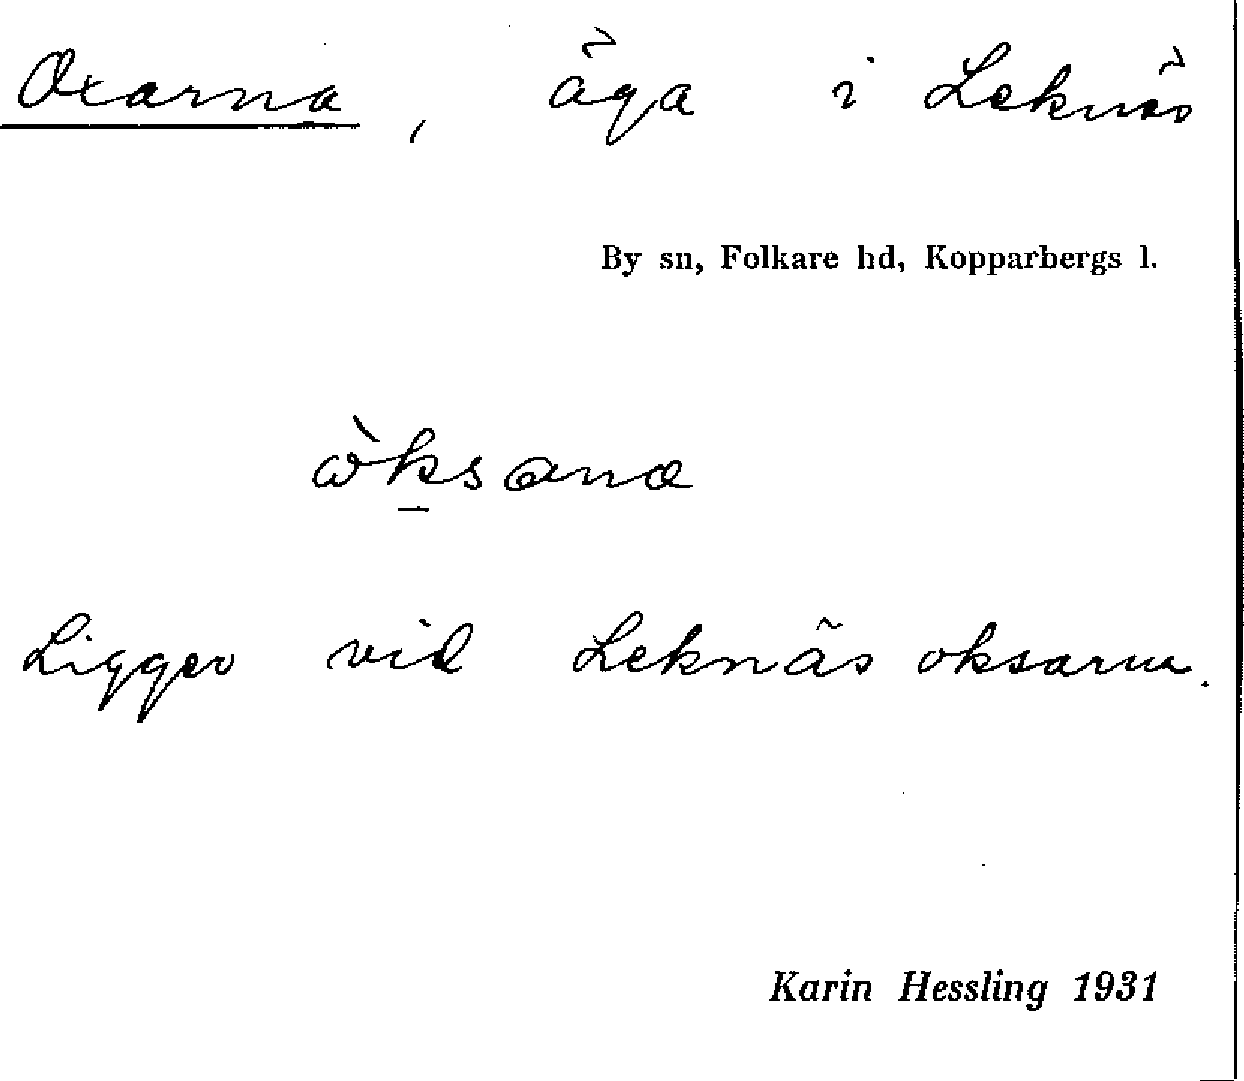 Oxarna, äga i Leknäs
By sn, Folkare hd, Kopparbergs l.
ὼksana
Ligger vid Leknäs oksarna.
Karin Hessling 1931